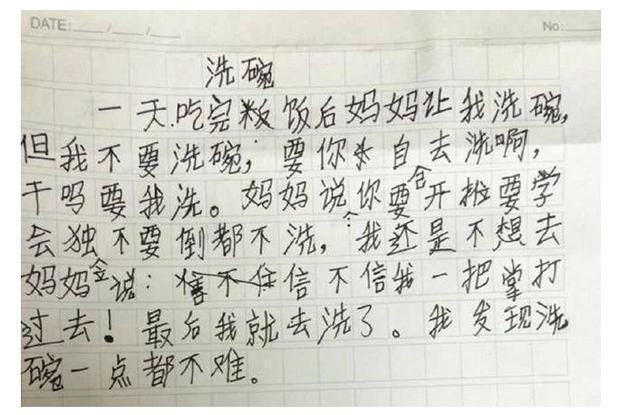 DATE: No:
洗碗
一天吃完饭后妈妈让我洗碗,
但我不要洗碗,要你自去洗啊,
干吗要我洗。妈妈说你要开 要学
会独不要倒都不洗,我还是不想去
妈妈说:信不信我一把掌打
过去!最后我就去洗了。我发现洗
碗一点都不难。